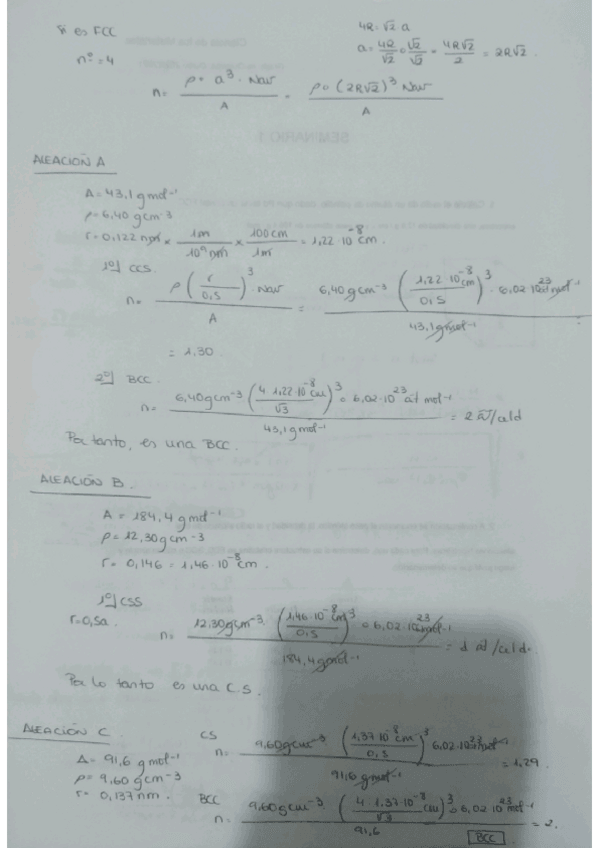 Si es FCC
nº = 4
4R = √2 a
a = 4R/√2 · √2/√2 = 4R√2/2 = 2R√2.
n = ρ · a³ · Nav / A = ρ · (2R√2)³ Nav / A
ALEACIÓN A
A = 43,1 g mol⁻¹
ρ = 6,40 g cm⁻³
r = 0,122 nm × 1m/10⁹ nm × 100 cm/1m = 1,22 · 10⁻⁸ cm.
1º] CCS
n = ρ (r/0,5)³ · Nav / A = 6,40 g cm⁻³ (1,22 · 10⁻⁸ cm/0,5)³ · 6,02 · 10²³ mol⁻¹ / 43,1 g mol⁻¹ =
= 1.30.
2º] BCC.
n = 6,40 g cm⁻³ (4 · 1,22 · 10⁻⁸ cm/√3)³ · 6,02 · 10²³ át mol⁻¹ / 43,1 g mol⁻¹ = 2 át/celd
Por tanto, es una BCC.
ALEACIÓN B.
A = 184,4 g mol⁻¹
ρ = 12,30 g cm⁻³
r = 0,146 = 1,46 · 10⁻⁸ cm.
1º] CSS
r = 0,5a.
n = 12.30 g cm⁻³ (1,46 · 10⁻⁸ cm/0,5)³ · 6,02 · 10²³ mol⁻¹ / 184,4 g mol⁻¹ = 1 át/celd.
Por lo tanto es una C.S.
ALEACIÓN C
A = 91,6 g mol⁻¹
ρ = 9,60 g cm⁻³
r = 0,137 nm.
CS
n = 9,60 g cm⁻³ (1,37 · 10⁻⁸ cm/0,5)³ 6,02 · 10²³ mol⁻¹ / 91,6 g mol⁻¹ = 1,29.
BCC
n = 9,60 g cm⁻³ (4 · 1,37 · 10⁻⁸ cm/√3)³ · 6,02 · 10²³ mol⁻¹ / 91,6 = 2.
BCC